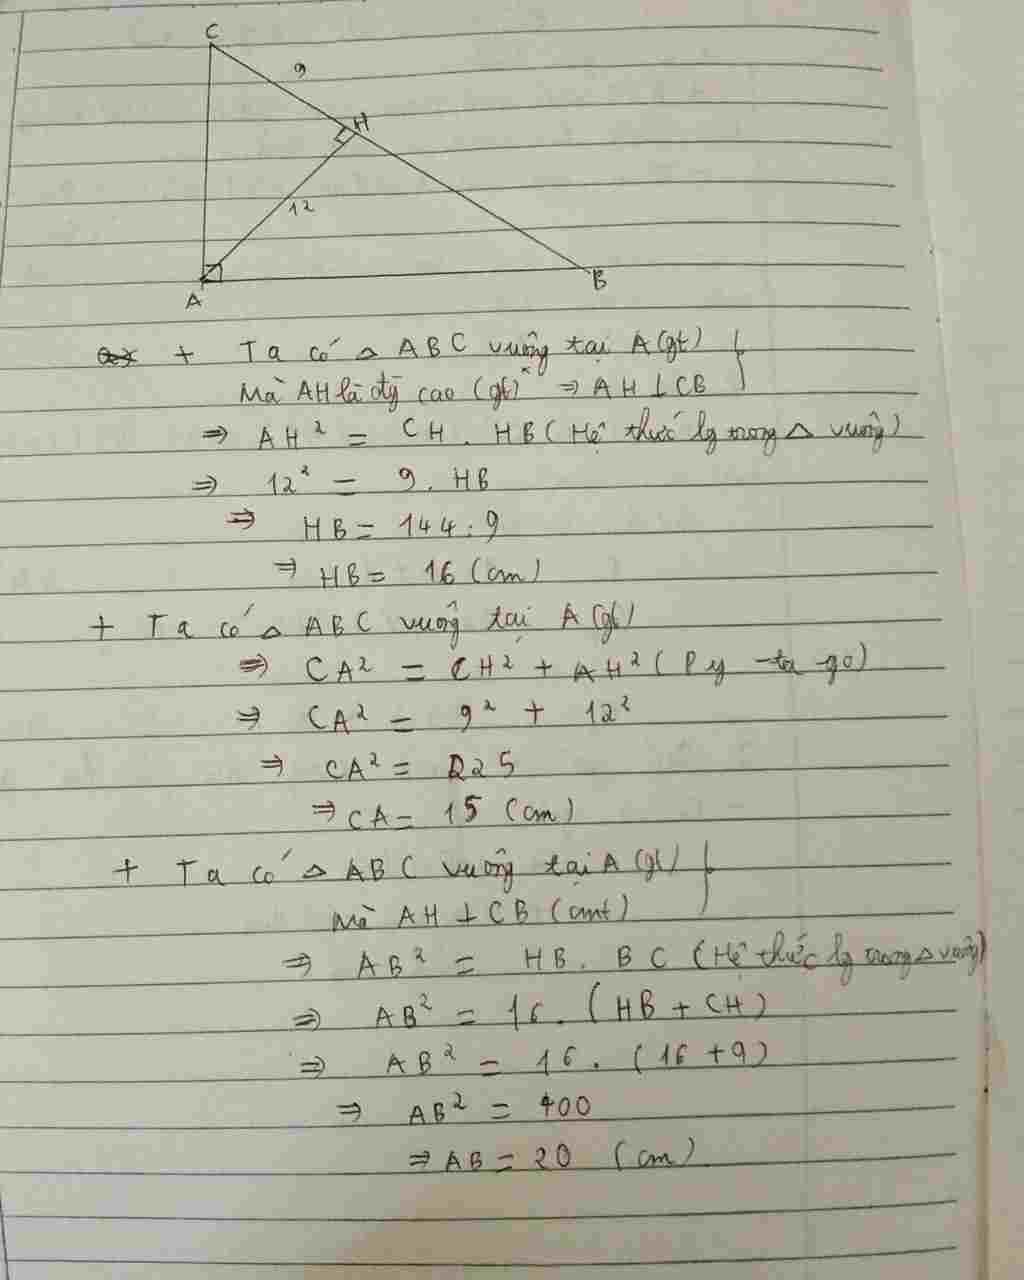 C
9
H
12
A
B
+ Ta có △ ABC vuông tại A (gt)
Mà AH là đg cao (gt) ⇒ AH ⊥ CB
⇒ AH² = CH . HB (Hệ thức lg trong △ vuông)
⇒ 12² = 9 . HB
⇒ HB = 144 : 9
⇒ HB = 16 (cm)
+ Ta có △ ABC vuông tại A (gt)
⇒ CA² = CH² + AH² (Py-ta-go)
⇒ CA² = 9² + 12²
⇒ CA² = 225
⇒ CA = 15 (cm)
+ Ta có △ ABC vuông tại A (gt)
Mà AH ⊥ CB (cmt)
⇒ AB² = HB . BC (Hệ thức lg trong △ vuông)
⇒ AB² = 16 . (HB + CH)
⇒ AB² = 16 . (16 + 9)
⇒ AB² = 400
⇒ AB = 20 (cm)